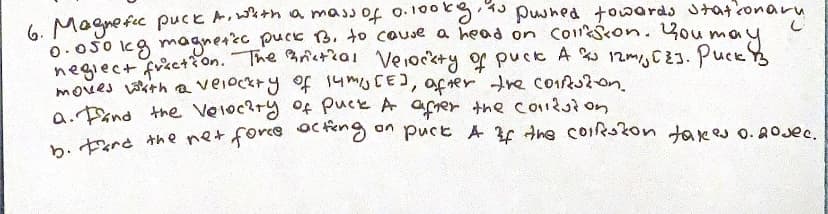 6. Magnetic puck A, with a mass of 0.100kg, is pushed towards stationary
0.050 kg magnetic puck B, to cause a head on collision. You may
neglect friction. The initial velocity of puck A is 12m/s [E]. Puck B
moves with a velocity of 14m/s [E], after the collision.
a. Find the velocity of puck A after the collision
b. Find the net force acting on puck A if the collision takes 0.20sec.